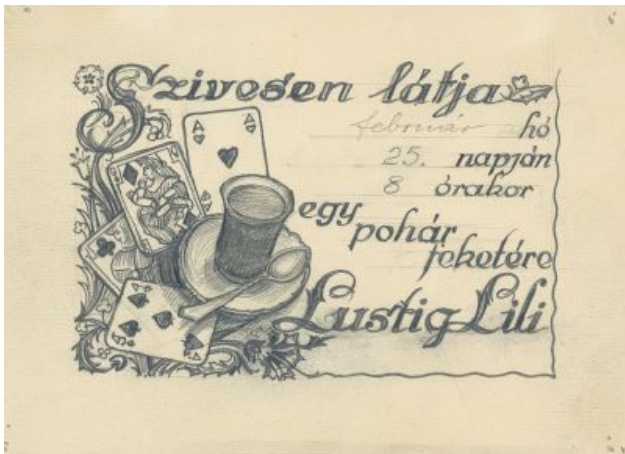 Szivesen látja
február hó
25. napján
8 órakor
egy
pohár
feketére
Lustig Lili